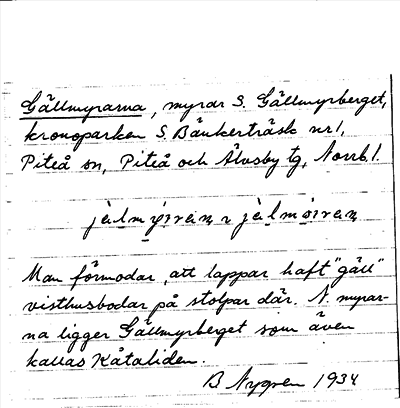 Gällmyrarna, myrar S. Gällmyrberget,
kronoparken S. Bänkerträsk nr 1,
Piteå sn, Piteå och Älvsby tg, Norrb. l.
Man förmodar, att lappar haft "gäll"
visthusbodar på stolpar där. N. myrar-
na ligger Gällmyrberget som även
kallas Kåtaliden.
B Nygren 1934